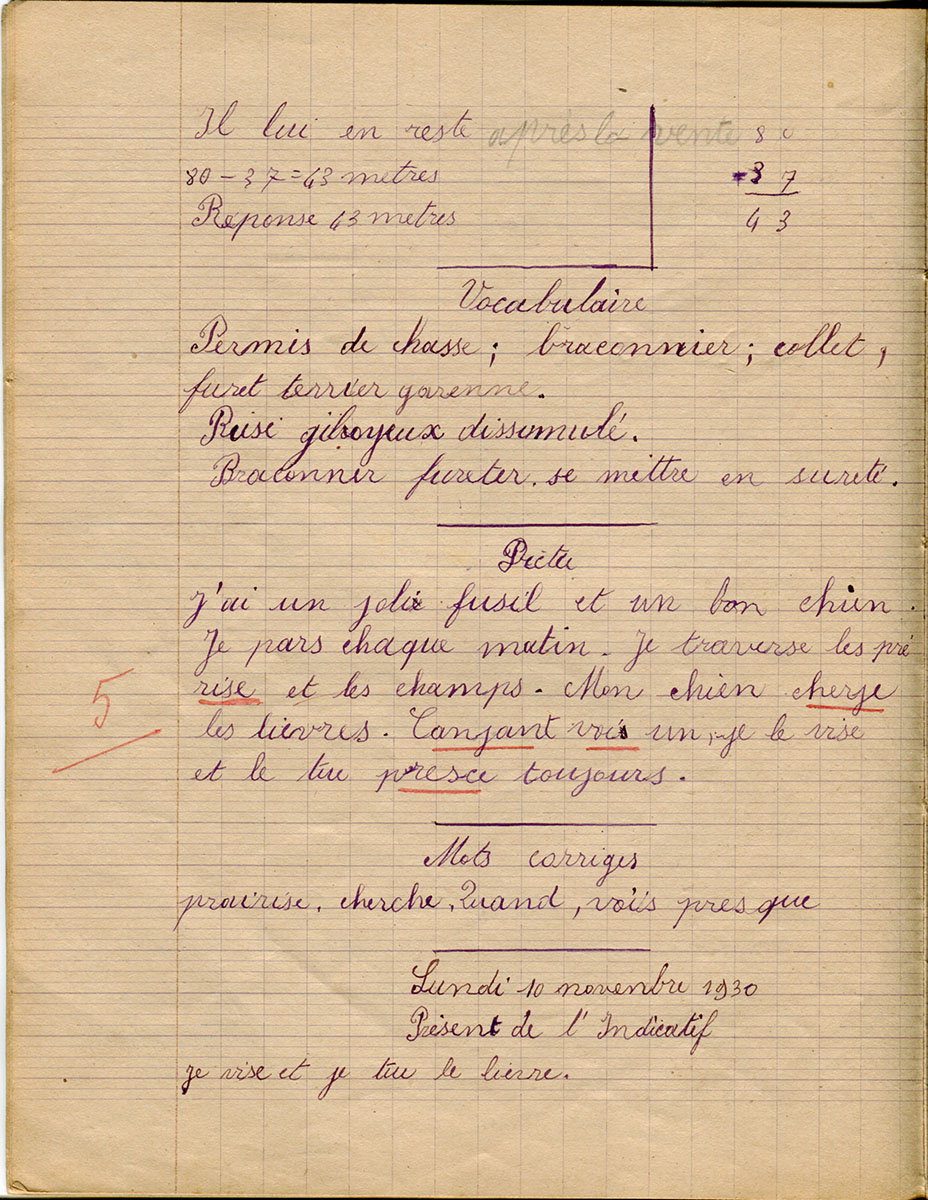 Il lui en reste après la vente
80 - 37 = 43 metres
Reponse 43 metres
80
- 37
43
Vocabulaire
Permis de chasse ; braconnier ; collet ,
furet terrier garenne.
Rusé giboyeux dissumulé.
Braconner fureter. se mettre en sureté.
Dictée
J'ai un joli fusil et un bon chien .
Je pars chaque matin. Je traverse les pré
rise et les champs. Mon chien cherje
les lievres. Canjant vois un, je le vise
et le tu presce toujours.
5
Mots corriges
prairise, cherche, Quand, vois presque
Lundi 10 novembre 1930
Présent de l'Indicatif
je vise et je tu le lievre.